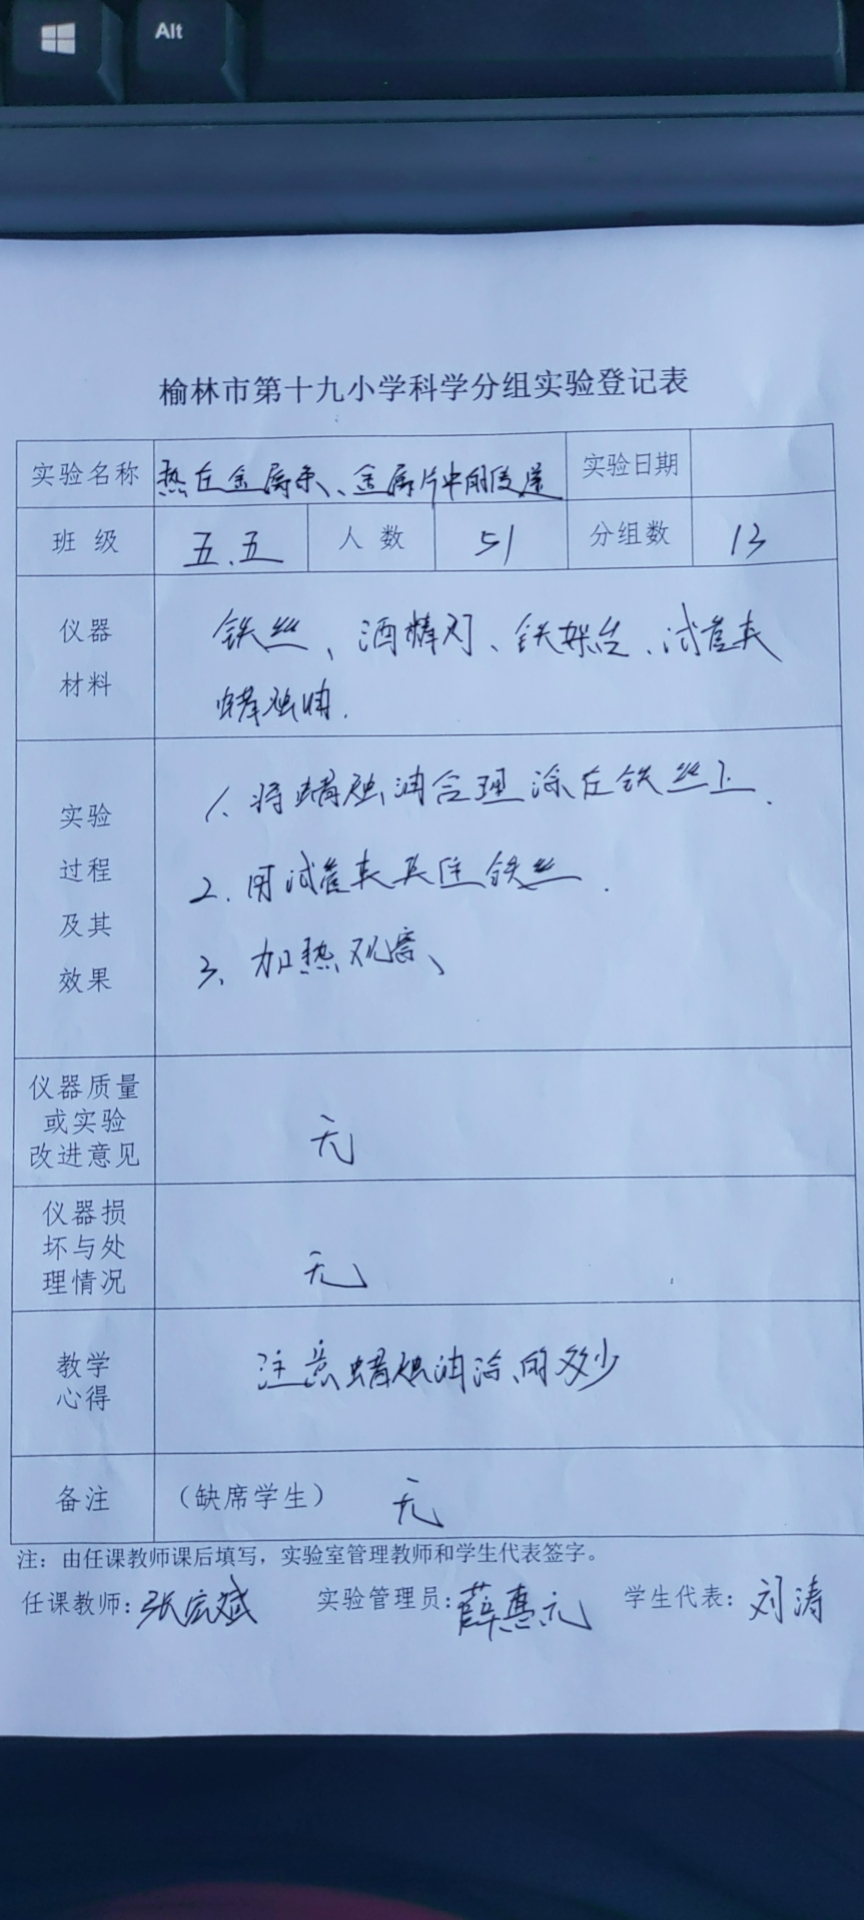 Alt
榆林市第十九小学科学分组实验登记表
实验名称 热在金属条、金属片中的传递 实验日期
班 级 五.五 人 数 51 分组数 13
仪器
材料
铁丝、酒精灯、铁架台、试管夹
蜡烛油.
实验
过程
及其
效果
1、将蜡烛油合理涂在铁丝上.
2.用试管夹夹住铁丝.
3、加热观察、
仪器质量
或实验
改进意见
无
仪器损
坏与处
理情况
无
教学
心得
注意蜡烛油 的多少
备注 （缺席学生） 无
注：由任课教师课后填写，实验室管理教师和学生代表签字。
任课教师：张宏斌 实验管理员：薛惠元 学生代表：刘涛